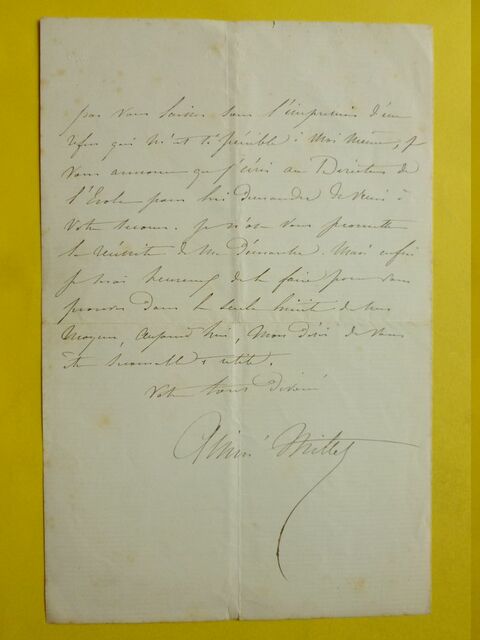 pas vous laisser sous l'impression d'un
refus qui m'est si pénible à moi même, je
vous annonce que j'écris au Directeur de
l'Ecole pour lui demander de venir à
votre secours. Je n'ose vous promettre
la réussite de ma démarche. Mais enfin
je serai heureux de la faire pour vous
prouver dans la seule limite de mes
moyens, aujourd'hui, mon désir de vous
être secourable & utile.
Votre tout dévoué
Aimé Millet